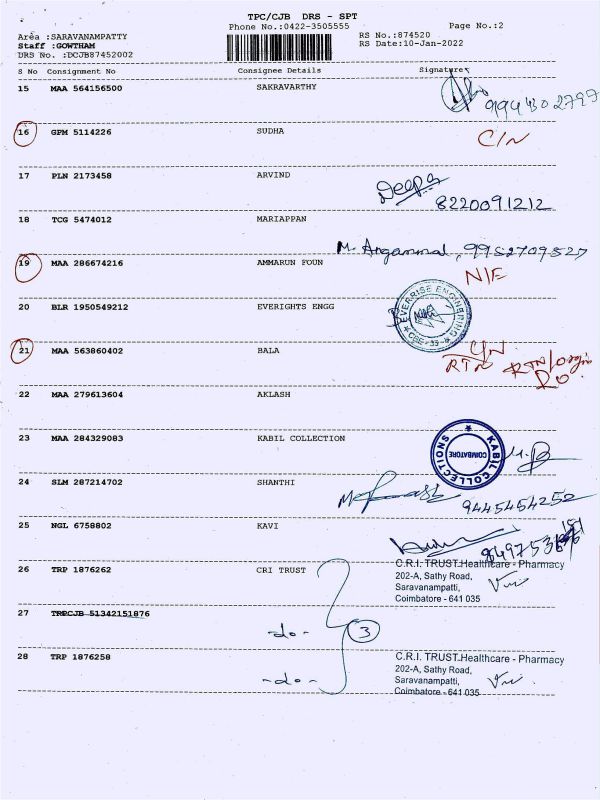 TPC/CJB DRS - SPT
Phone No.:0422-3505555
Page No.:2
Area :SARAVANAMPATTY
RS No.:874520
Staff :GOWTHAM
RS Date:10-Jan-2022
DRS No. :DCJB87452002
S No Consignment No Consignee Details Signature
15 MAA 564156500 SAKRAVARTHY
9194302797
16 GPM 5114226 SUDHA C/N
17 PLN 2173458 ARVIND Deepa
8220091212
18 TCG 5474012 MARIAPPAN
M. Angammal, 9952709527
19 MAA 286674216 AMMARUN FOUN N/E
20 BLR 1950549212 EVERIGHTS ENGG
EVERRISE ENGINEERING
CBE-35
21 MAA 563860402 BALA C/N
RTN RTN/Origin
22 MAA 279613604 AKLASH
23 MAA 284329083 KABIL COLLECTION
KABIL COLLECTIONS
COIMBATORE
24 SLM 287214702 SHANTHI
9445454252
25 NGL 6758802 KAVI
26 TRP 1876262 CRI TRUST
C.R.I. TRUST Healthcare - Pharmacy
202-A, Sathy Road,
Saravanampatti,
Coimbatore - 641 035
27 TRPCJB 51342151876
-do- 3
28 TRP 1876258
-do-
C.R.I. TRUST Healthcare - Pharmacy
202-A, Sathy Road,
Saravanampatti,
Coimbatore - 641 035